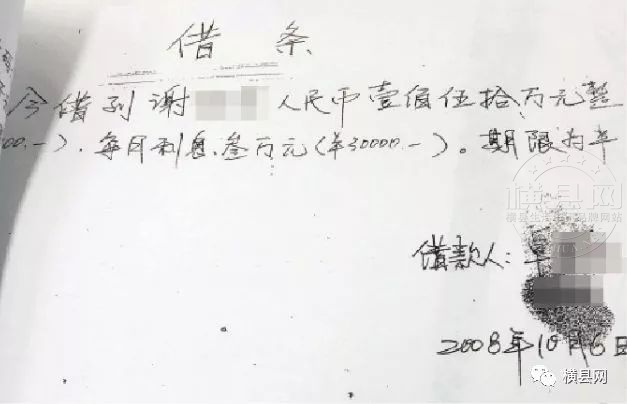 借条
今借到谢 人民币壹佰伍拾万元整
00.—).每月利息.叁万元(羊30000.—)。期限为半
借款人:
2008年10月6日
横县网
横县网